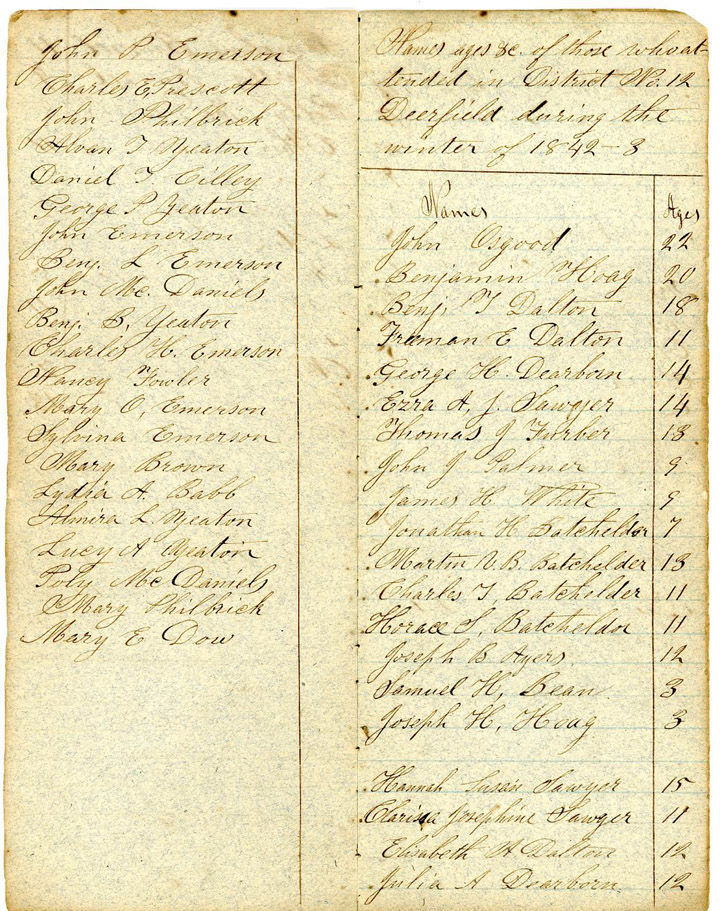 John P. Emerson
Charles E Prescott
John Philbrick
Alvan T Yeaton
Daniel T Cilley
George P Yeaton
John Emerson
Benj. L Emerson
John Mc. Daniels
Benj. B, Yeaton
Charles H. Emerson
Nancy Fowler
Mary O, Emerson
Sylvina Emerson
Mary Brown
Lydia A. Babb
Almira L. Yeaton
Lucy A Yeaton
Poly Mc Daniels
Mary Philbrick
Mary E Dow
Names ages &c. of those who at-
tended in District No. 12
Deerfield during the
winter of 1842-3
Names Ages
John Osgood 22
Benjamin Hoag 20
Benj. T Dalton 18
Freman E Dalton 11
George H. Dearborn 14
Ezra A, J. Sawyer 14
Thomas J Furber 18
John J Palmer 9
James H. White 9
Jonathan H. Batcheldor 7
Martin V. B. Batchelder 13
Charles T, Batchelder 11
Horace S, Batcheldor 11
Joseph B Ayers. 12
Samuel H, Bean 3
Joseph H, Hoag 3
Hannah Susan Sawyer 15
Clarissa Josephine Sawyer 11
Elisabeth A Dalton 12
Julia A Dearborn 12